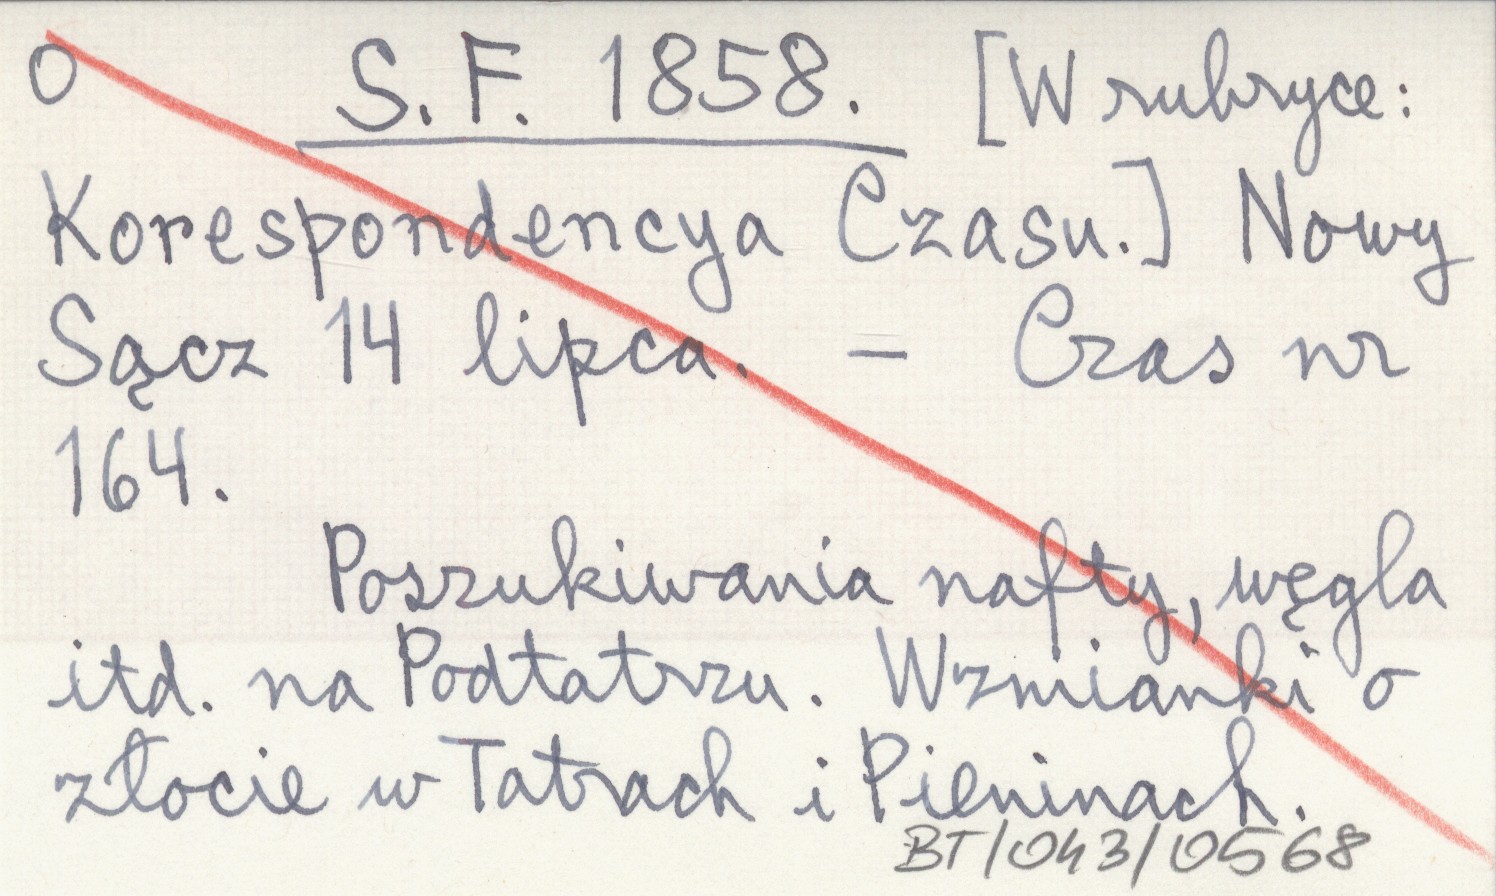 O S. F. 1858. [W rubryce:
Korespondencya Czasu.] Nowy
Sącz 14 lipca. – Czas nr
164.
Poszukiwania nafty, węgla
itd. na Podtatrzu. Wzmianki o
złocie w Tatrach i Pieninach.
BT/043/0568